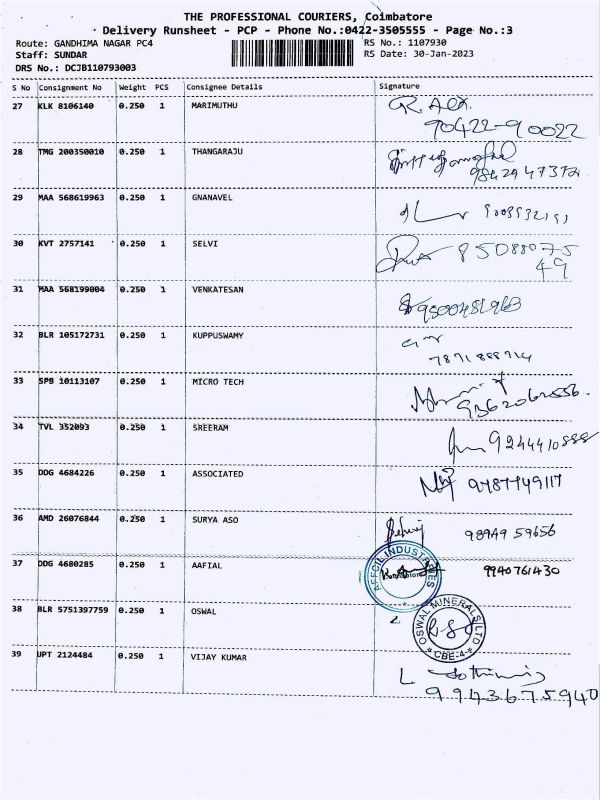 THE PROFESSIONAL COURIERS, Coimbatore
Delivery Runsheet - PCP - Phone No.:0422-3505555 - Page No.:3
Route: GANDHIMA NAGAR PC4
RS No.: 1107930
Staff: SUNDAR
RS Date: 30-Jan-2023
DRS No.: DCJB110793003
S No Consignment No Weight PCS Consignee Details Signature
27 KLK 8106140 0.250 1 MARIMUTHU
90422-90022
28 TMG 200350010 0.250 1 THANGARAJU
98429 47372
29 MAA 568619963 0.250 1 GNANAVEL
30 KVT 2757141 0.250 1 SELVI 85088075
49
31 MAA 568199004 0.250 1 VENKATESAN 9500481963
32 BLR 105172731 0.250 1 KUPPUSWAMY
7871888714
33 SPB 10113107 0.250 1 MICRO TECH
34 TVL 352093 0.250 1 SREERAM 9244410888
35 DDG 4684226 0.250 1 ASSOCIATED 9787749117
36 AMD 26076844 0.250 1 SURYA ASO 98949 59656
37 DDG 4680285 0.250 1 AAFIAL INDUSTRIES 9940761430
38 BLR 5751397759 0.250 1 OSWAL OSWAL MINERALS LTD
CBE-4
39 UPT 2124484 0.250 1 VIJAY KUMAR
9943675940